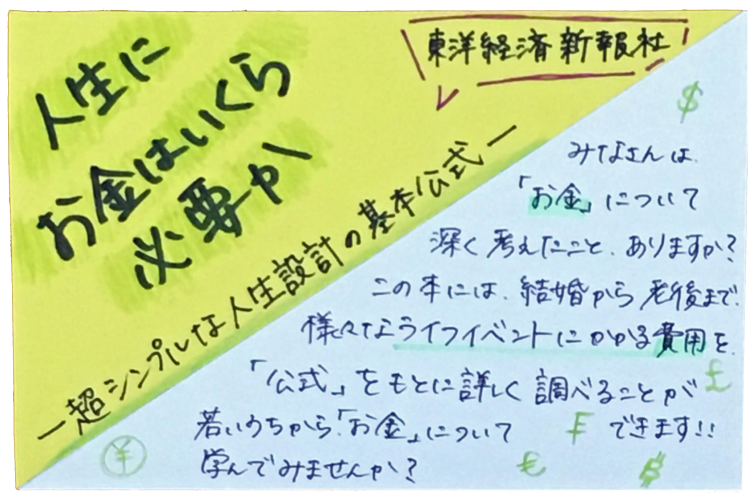 人生に
お金はいくら
必要か
―超シンプルな人生設計の基本公式―
東洋経済新報社
$
みなさんは、
「お金」について
深く考えたこと、ありますか?
この本には、結婚から老後まで、
様々なライフイベントにかかる費用を、
「公式」をもとに詳しく調べることが
£
できます!!
若いうちから「お金」について
学んでみませんか?
¥
€
₣
฿